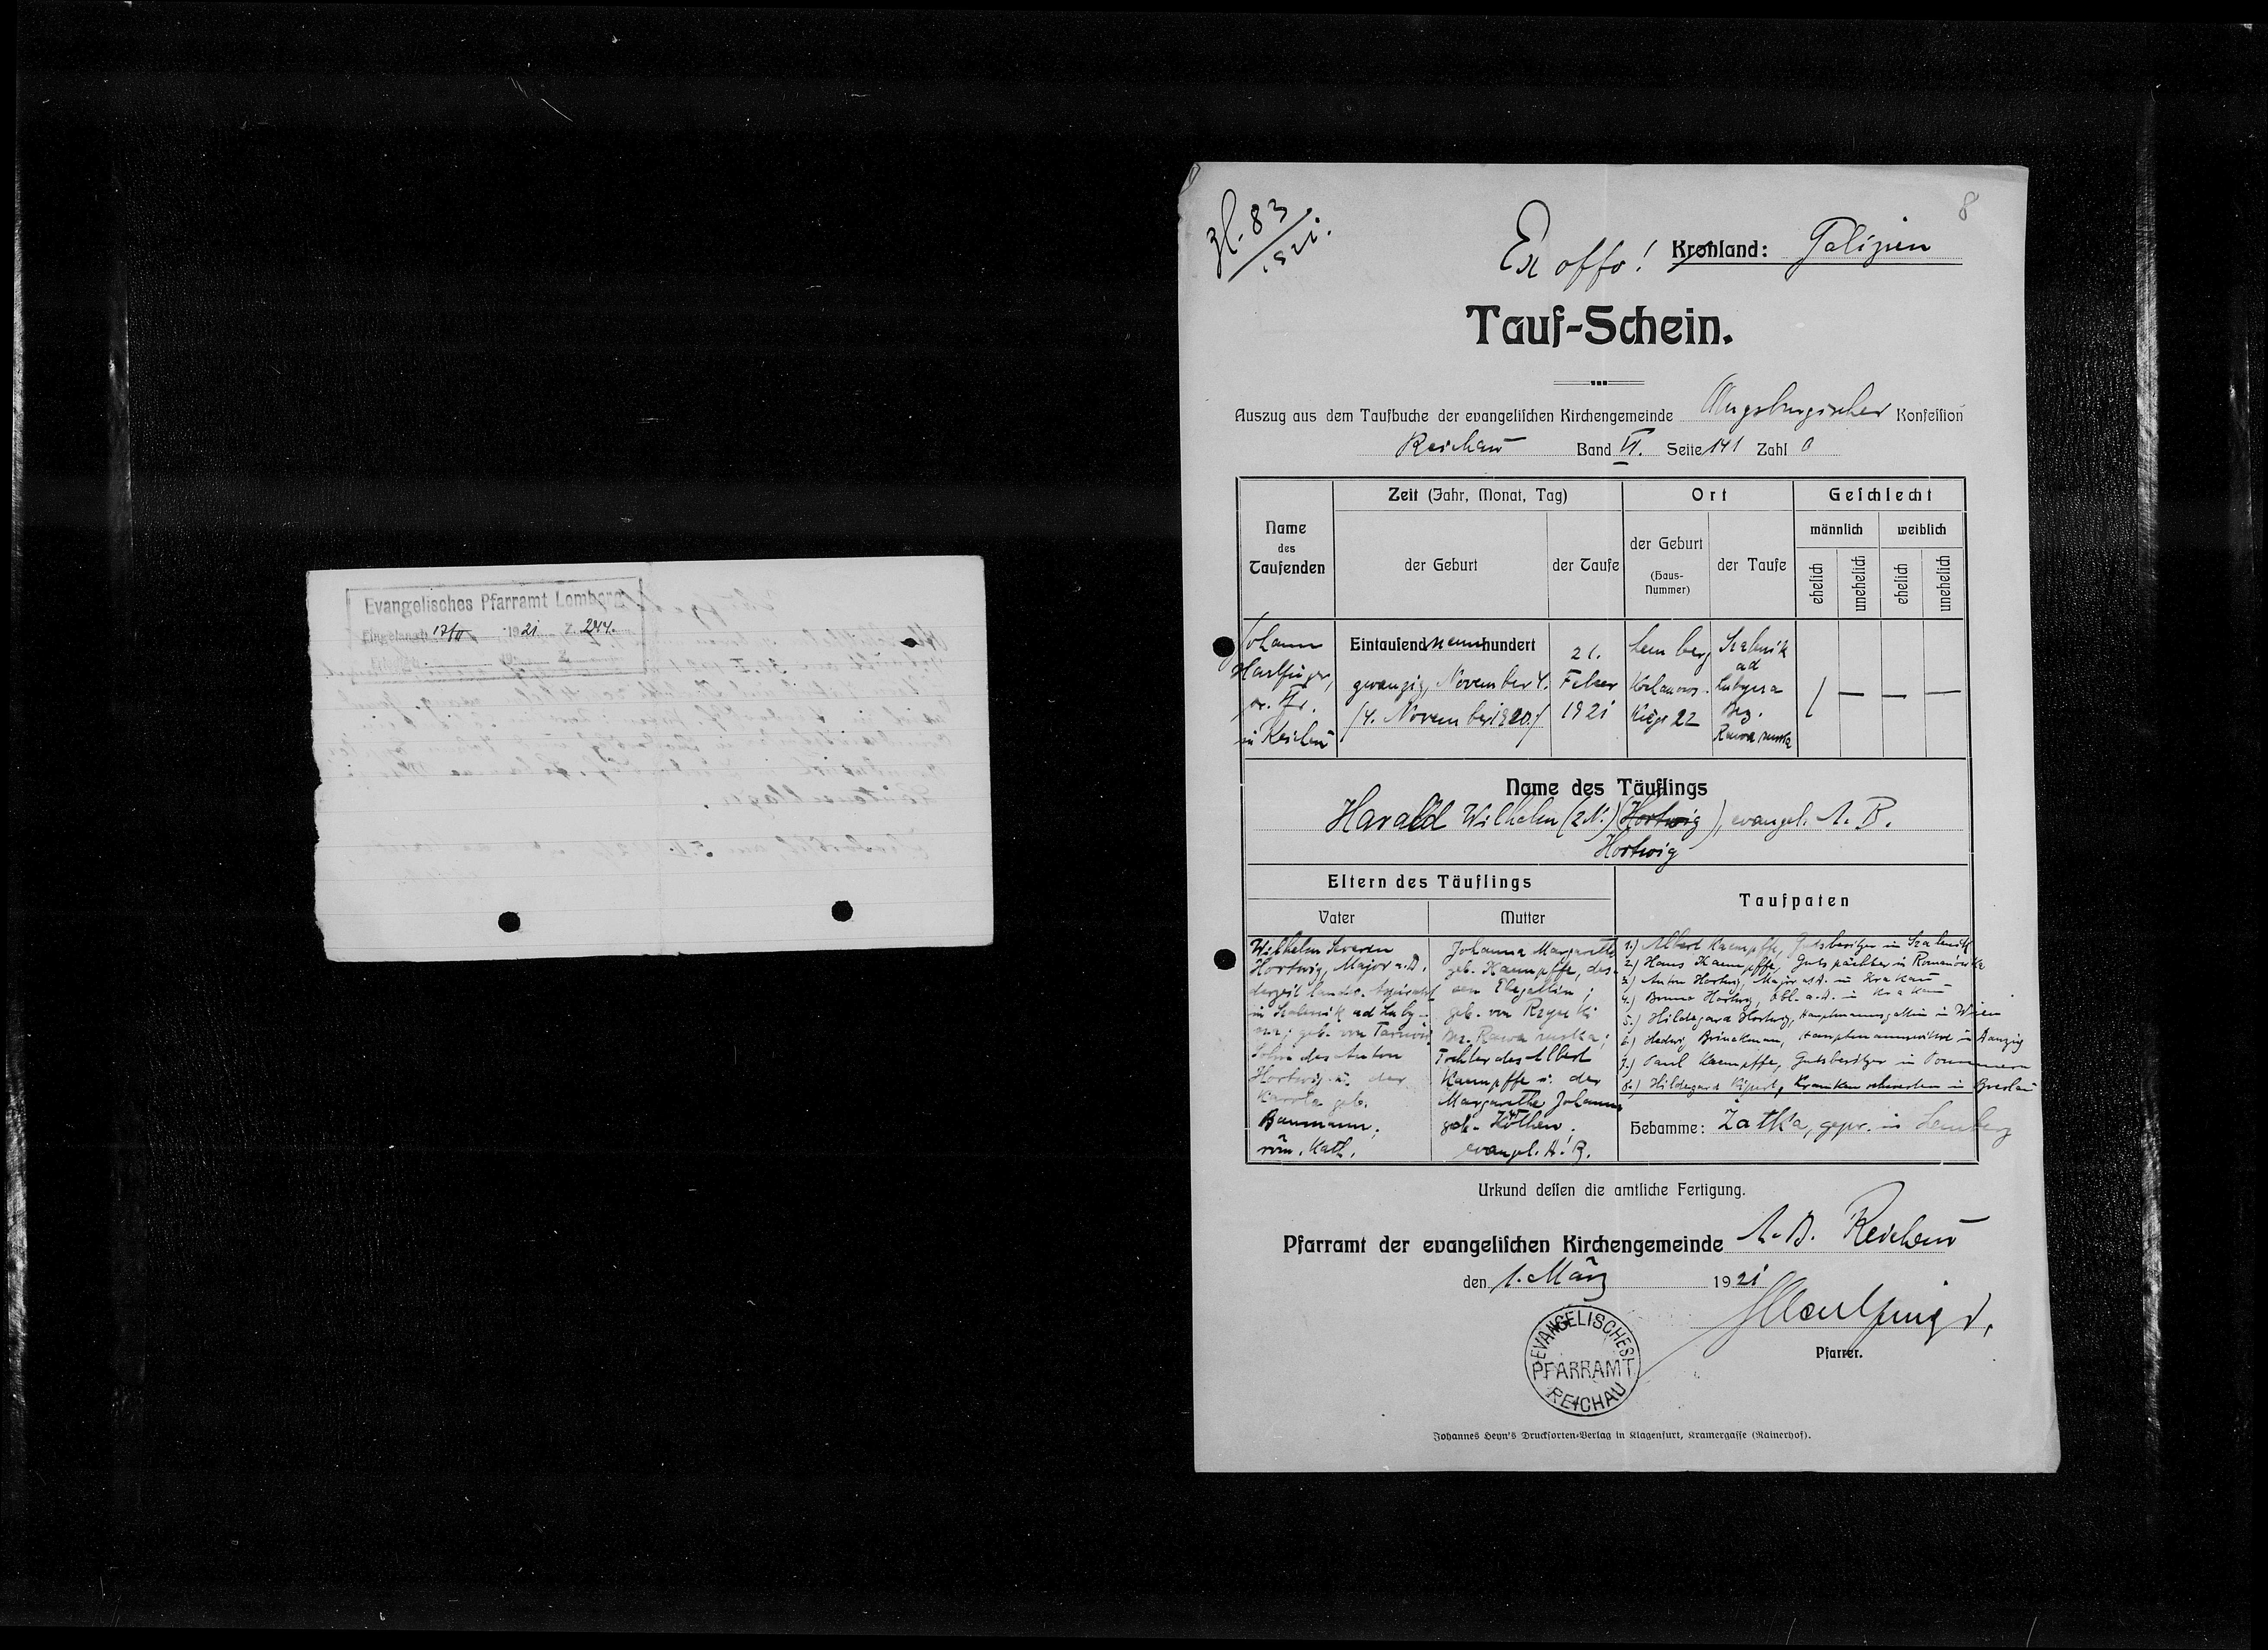 Evangelisches Pfarramt Lemberg
Eingelangt 17/II 1921 Z. 244.
8
Zl. 83
1921.
Ex offo! Kronland: Galizien
Tauf-Schein.
Auszug aus dem Taufbuche der evangelischen Kirchengemeinde Augsburgischer Konfession
Reichau Band VI. Seite 141 Zahl 0
Zeit (Jahr, Monat, Tag) Ort Geschlecht
Name des Taufenden
der Geburt der Taufe
der Geburt (Haus-Nummer) der Taufe
männlich weiblich
ehelich unehelich ehelich unehelich
Johann Eintausendneunhundert 21. Lemberg Szalenik
ad
Harlfinger, zwanzig, November 4. Feber Lubycza
pr. Pfr. /4. November 1920./ 1921 22 Bez.
in Reichau Rawa ruska
1 — — —
Name des Täuflings
Harald Wilhelm (2 N.) (Hortwig), evangel. A. B.
Hortwig
Eltern des Täuflings Taufpaten
Vater Mutter
Wilhelm Severin
Hortwig, Major a. D.
derzeit landw.
in Szalenik ad Luby-
cza; geb. von
Sohn des Anton
Hortwig u. der
Karola geb.
Baumann;
röm. kath.
Johanna Margarethe
geb. Kaempffe, des-
sen Ehegattin;
geb. von Rzyczki
Bez. Rawa ruska;
Tochter des Albert
Kaempffe u. der
Margarethe Johanna
geb. Köthen;
evangel. A. B.
1.) Albert Kaempffe, Gutsbesitzer in Szalenik
2.) Hans Kaempffe, Gutspächter in Romanówka
3.) Anton Hortwig, Major a. D. in Krakau
4.) Bruno Hortwig, Obl. a. D. in Krakau
5.) Hildegard Hortwig, Hauptmannsgattin in Wien
6.) Hedwig Brinckmann, Hauptmannswitwe in Danzig
7.) Paul Kaempffe, Gutsbesitzer in Pommern
8.) Hildegard Krankenschwester in Breslau
Hebamme: Zatka, gepr. in Lemberg
Urkund dessen die amtliche Fertigung.
Pfarramt der evangelischen Kirchengemeinde A. B. Reichau
den 1. März 1921
JHarlfinger,
Pfarrer.
EVANGELISCHES
PFARRAMT
REICHAU
Johannes Heyn's Drucksorten-Verlag in Klagenfurt, Kramergasse (Rainerhof).